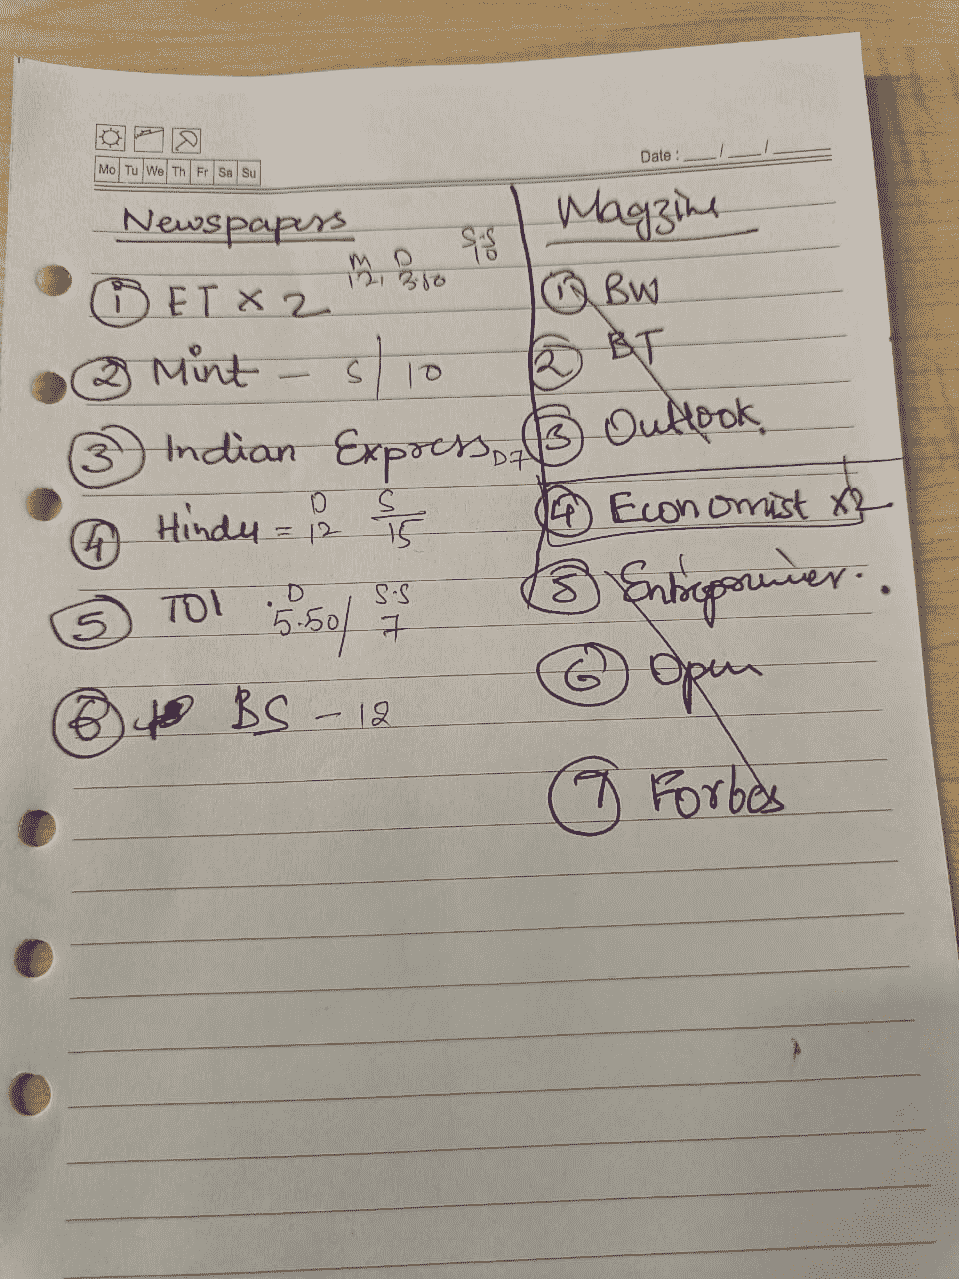 Mo Tu We Th Fr Sa Su
Date : __/__/__
Newspapers
M D S.S
12, 3.50 10
① ET x 2
② Mint - S/ 10
③ Indian Express, D7
D S
④ Hindu = 12 15
D S.S
⑤ TOI 5.50/ 7
⑥ BS - 12
Magzine
① BW
② BT
③ Outlook
④ Economist x2
⑤
⑥ Open
⑦ Forbes